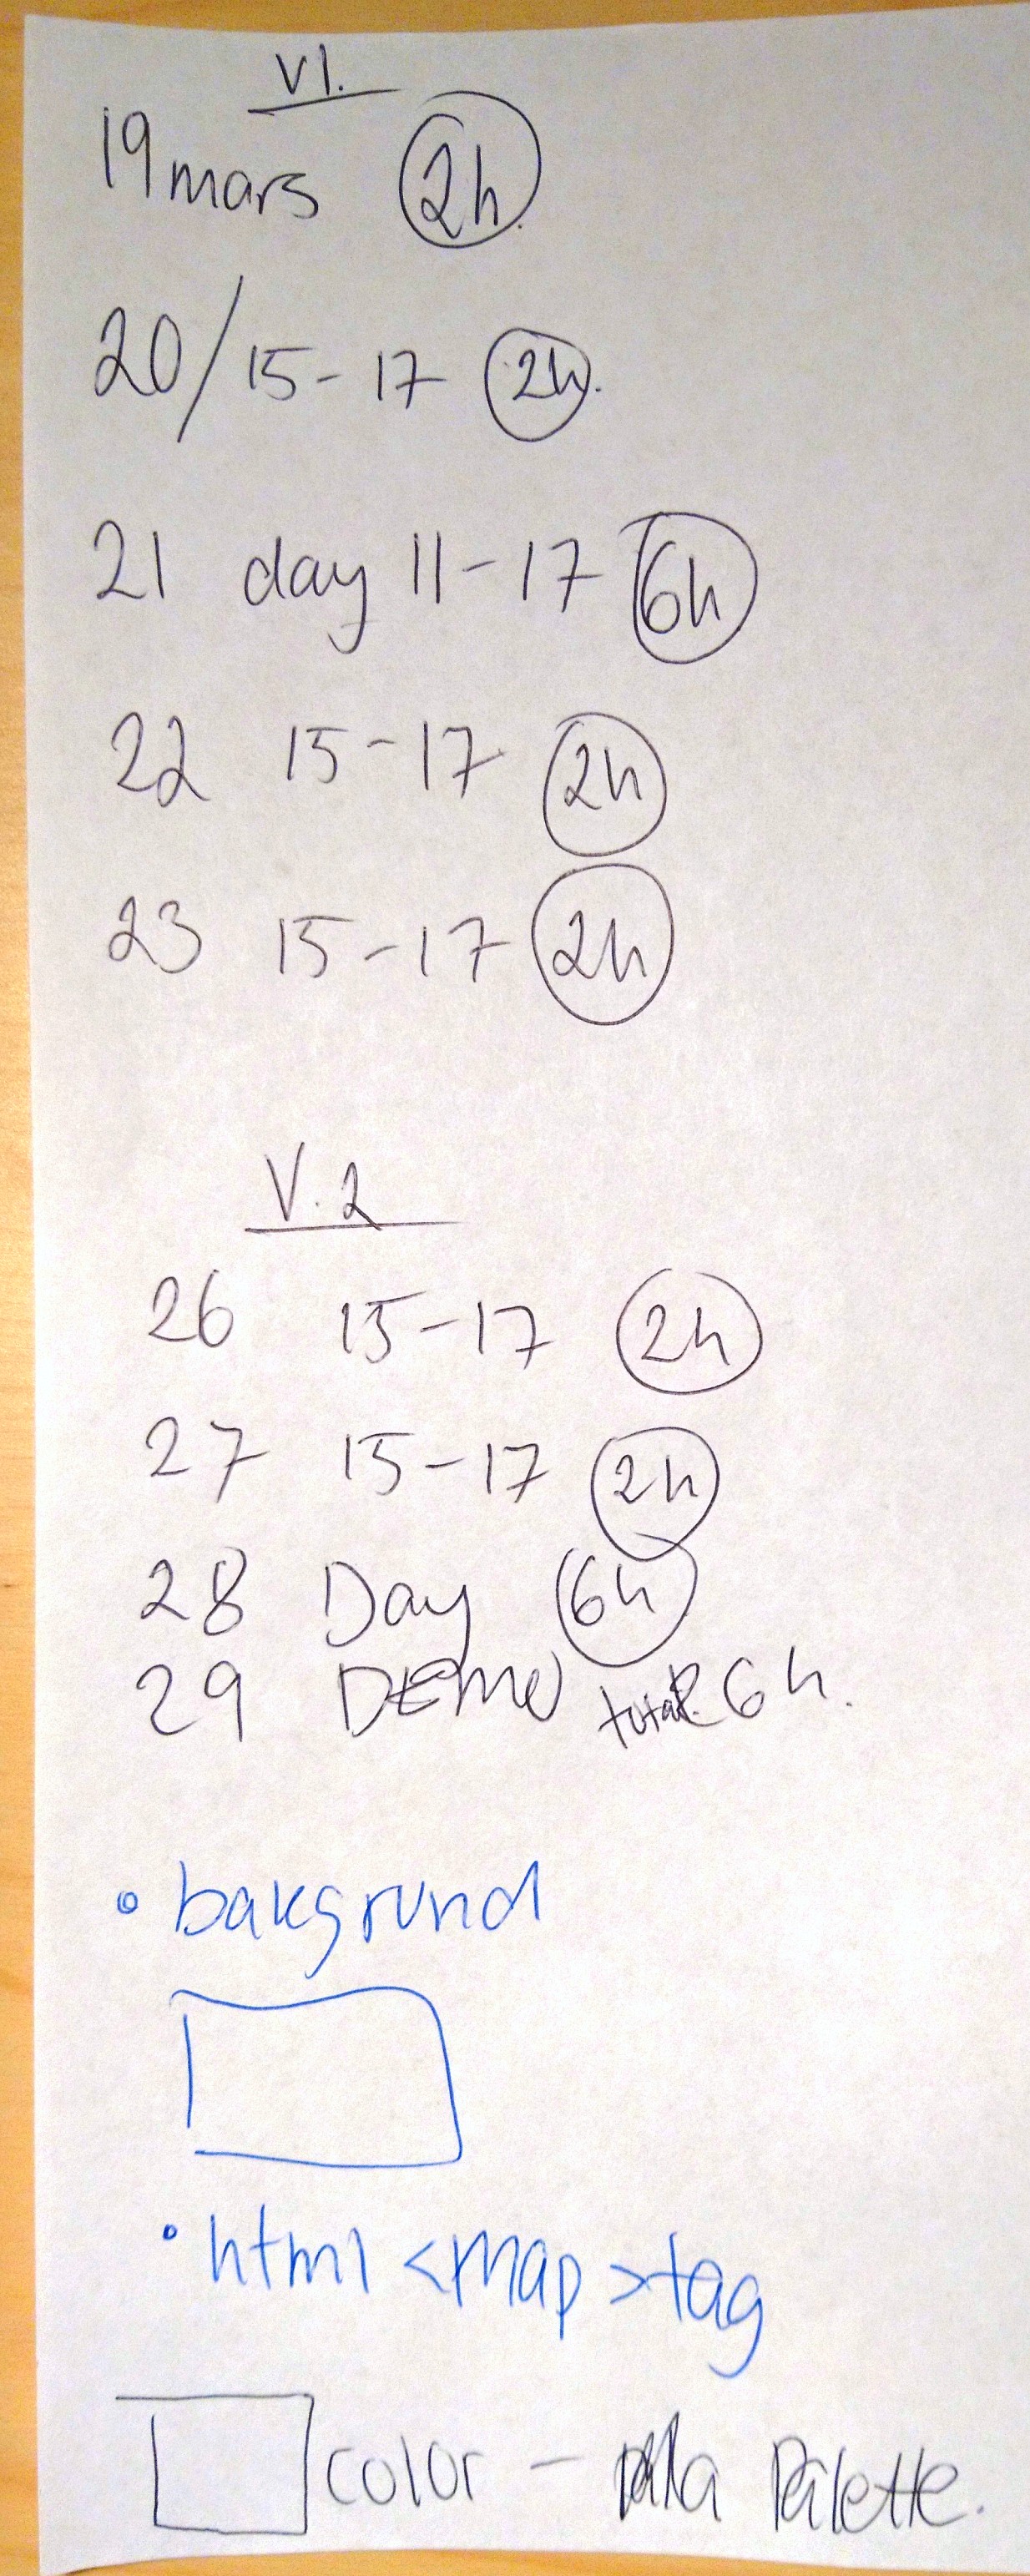 V1.
19 mars 2h.
20/15-17 2h.
21 day 11-17 6h
22 15-17 2h
23 15-17 2h
V.2
26 15-17 2h
27 15-17 2h
28 Day 6h
29 DEMO total 6h.
• bakgrund
• html <map> tag
color - Palette.